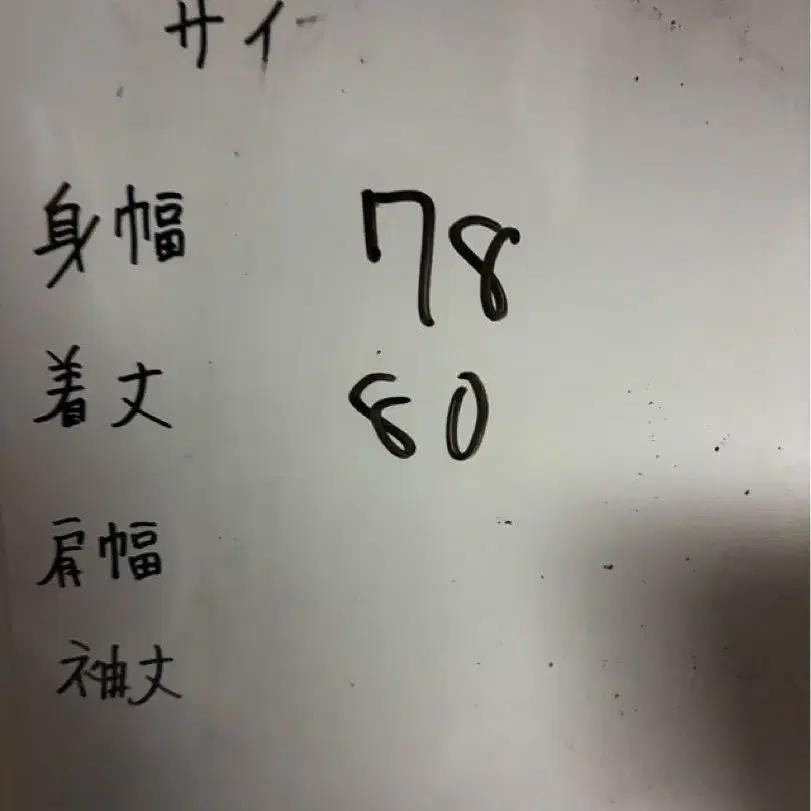 サイ
身幅 78
着丈 80
肩幅
袖丈